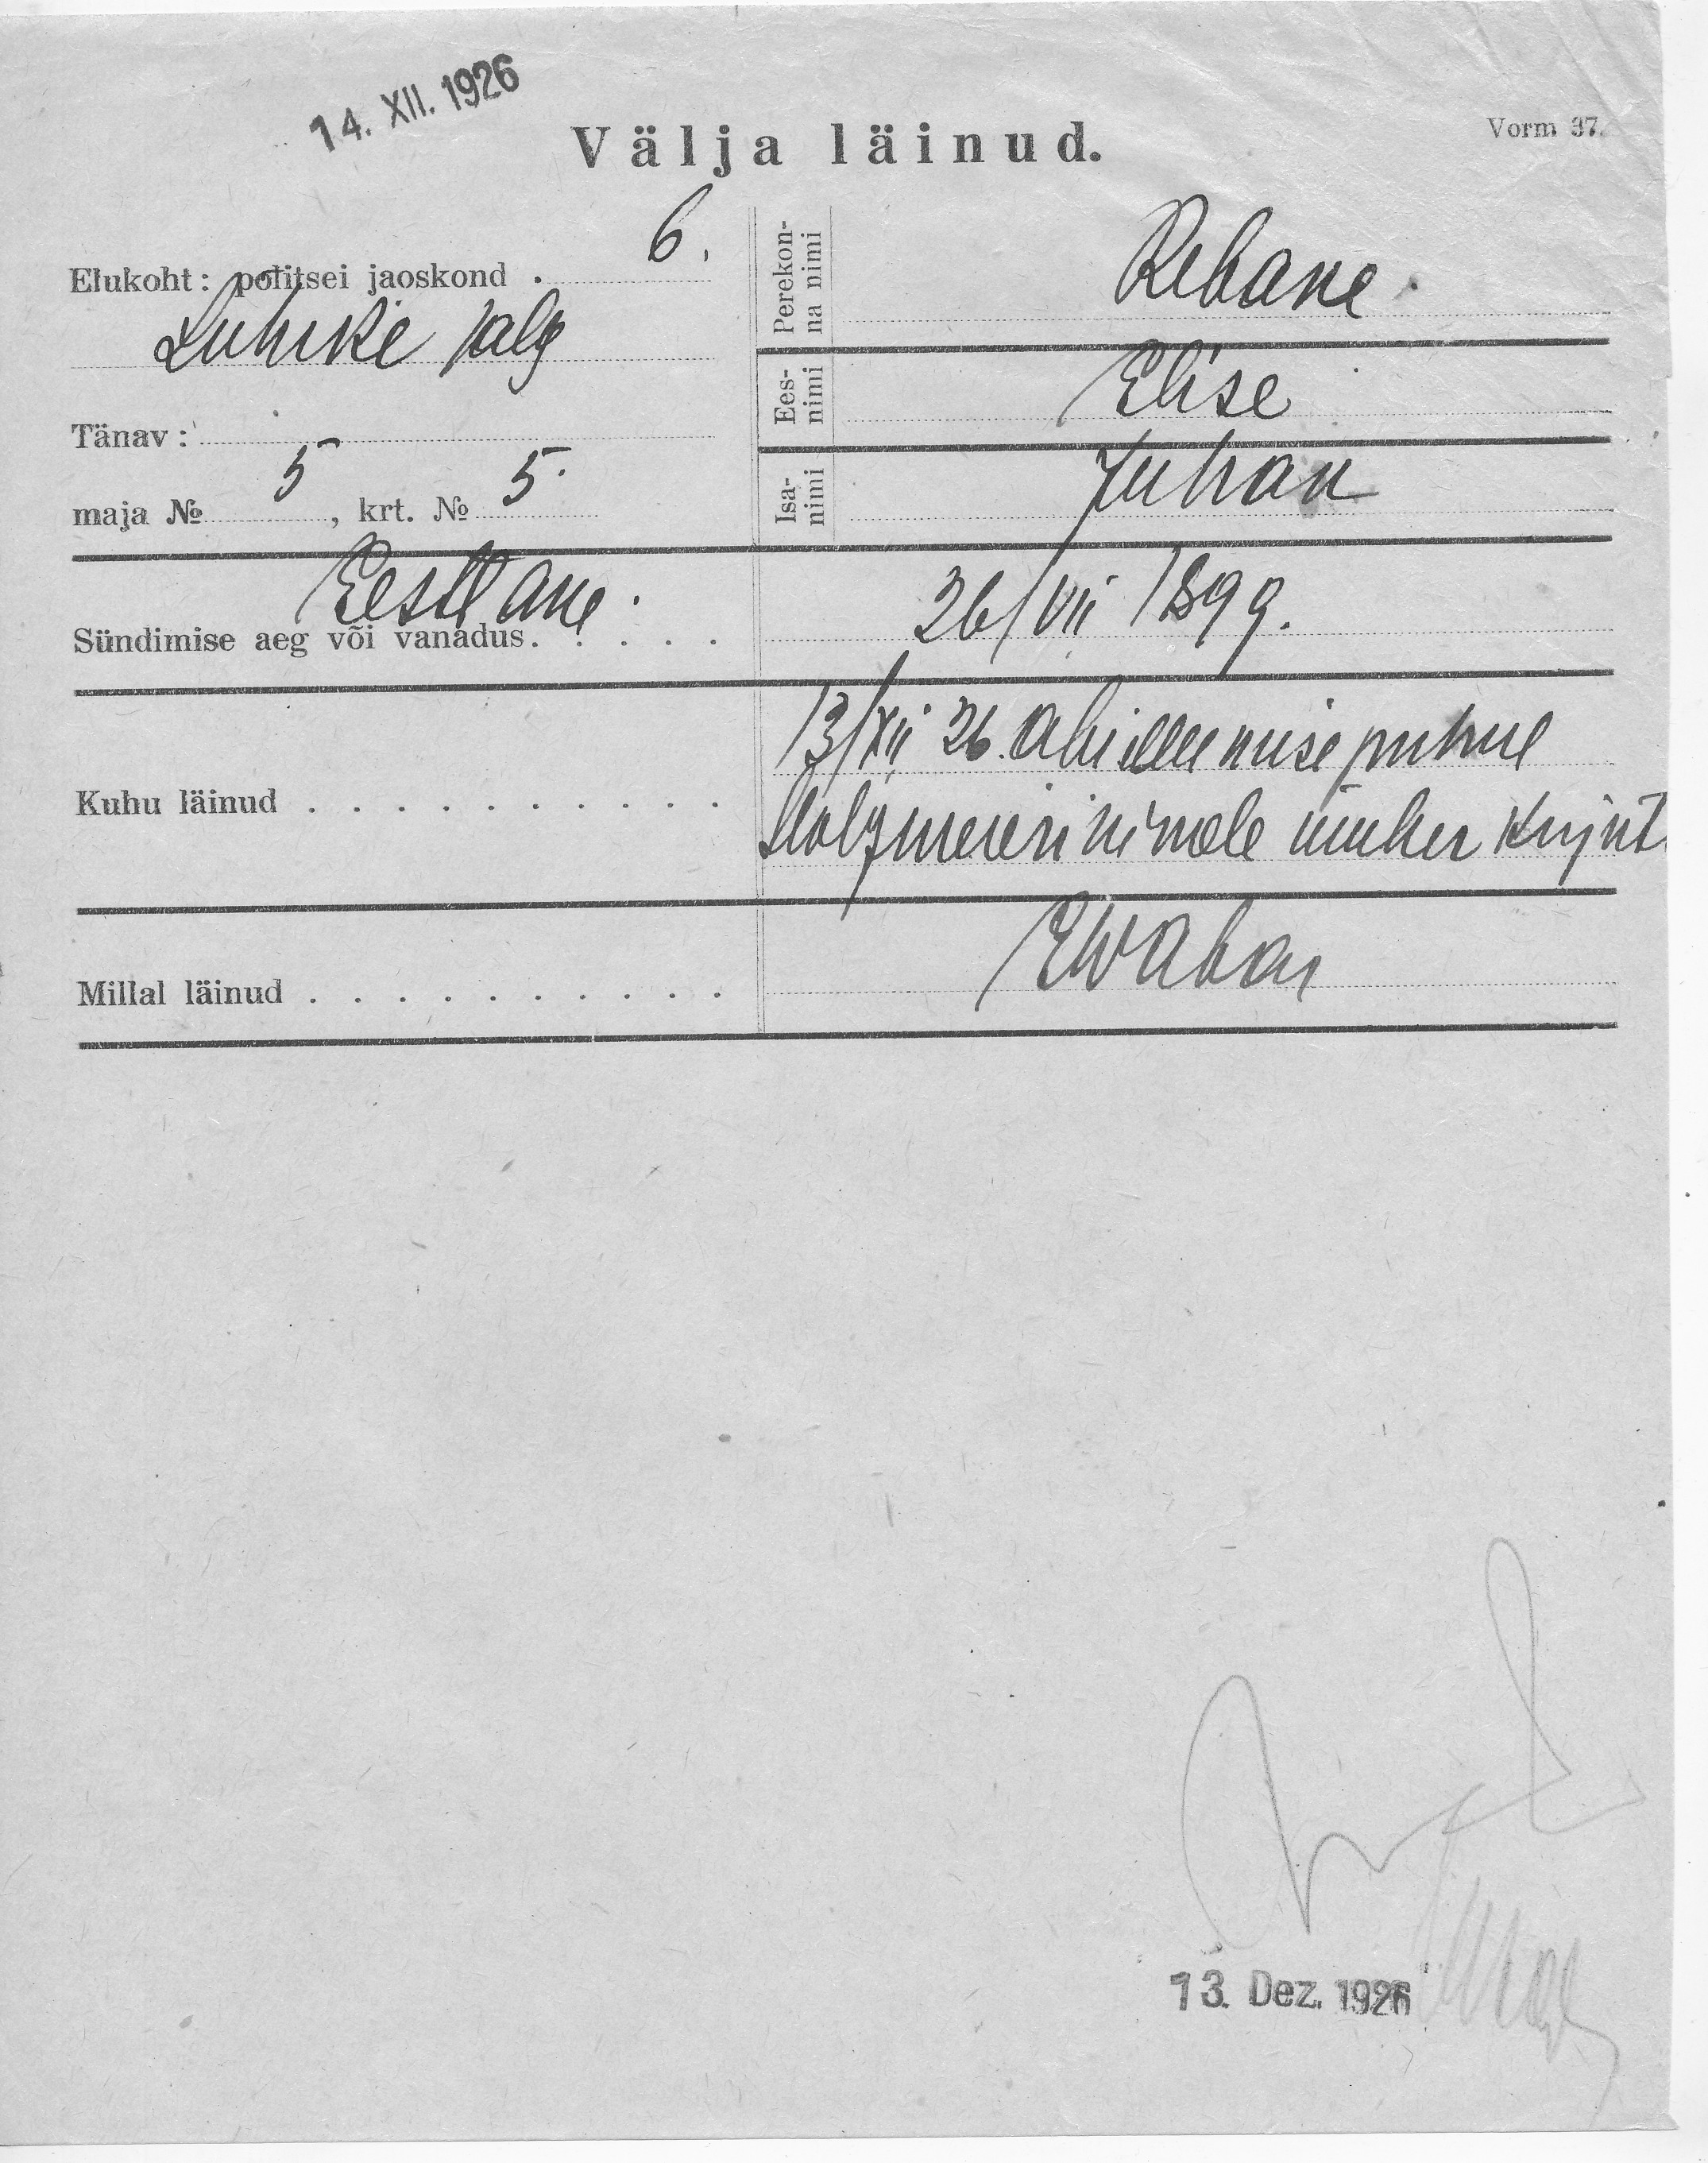 14. XII. 1926
Välja läinud.
Vorm 37.
Elukoht: politsei jaoskond . 6.
Lühike jalg
Tänav:
maja № 5, krt. № 5.
Perekonna nimi Rebane.
Eesnimi Elise
Isanimi Juhan
Eestlane.
Sündimise aeg või vanadus. . . . . 26/VII 1899.
Kuhu läinud . . . . . . . . . . 13/XII 26. abiellumise puhul
nimele üuher kirjut.
Millal läinud . . . . . . . . . .
13. Dez. 1926